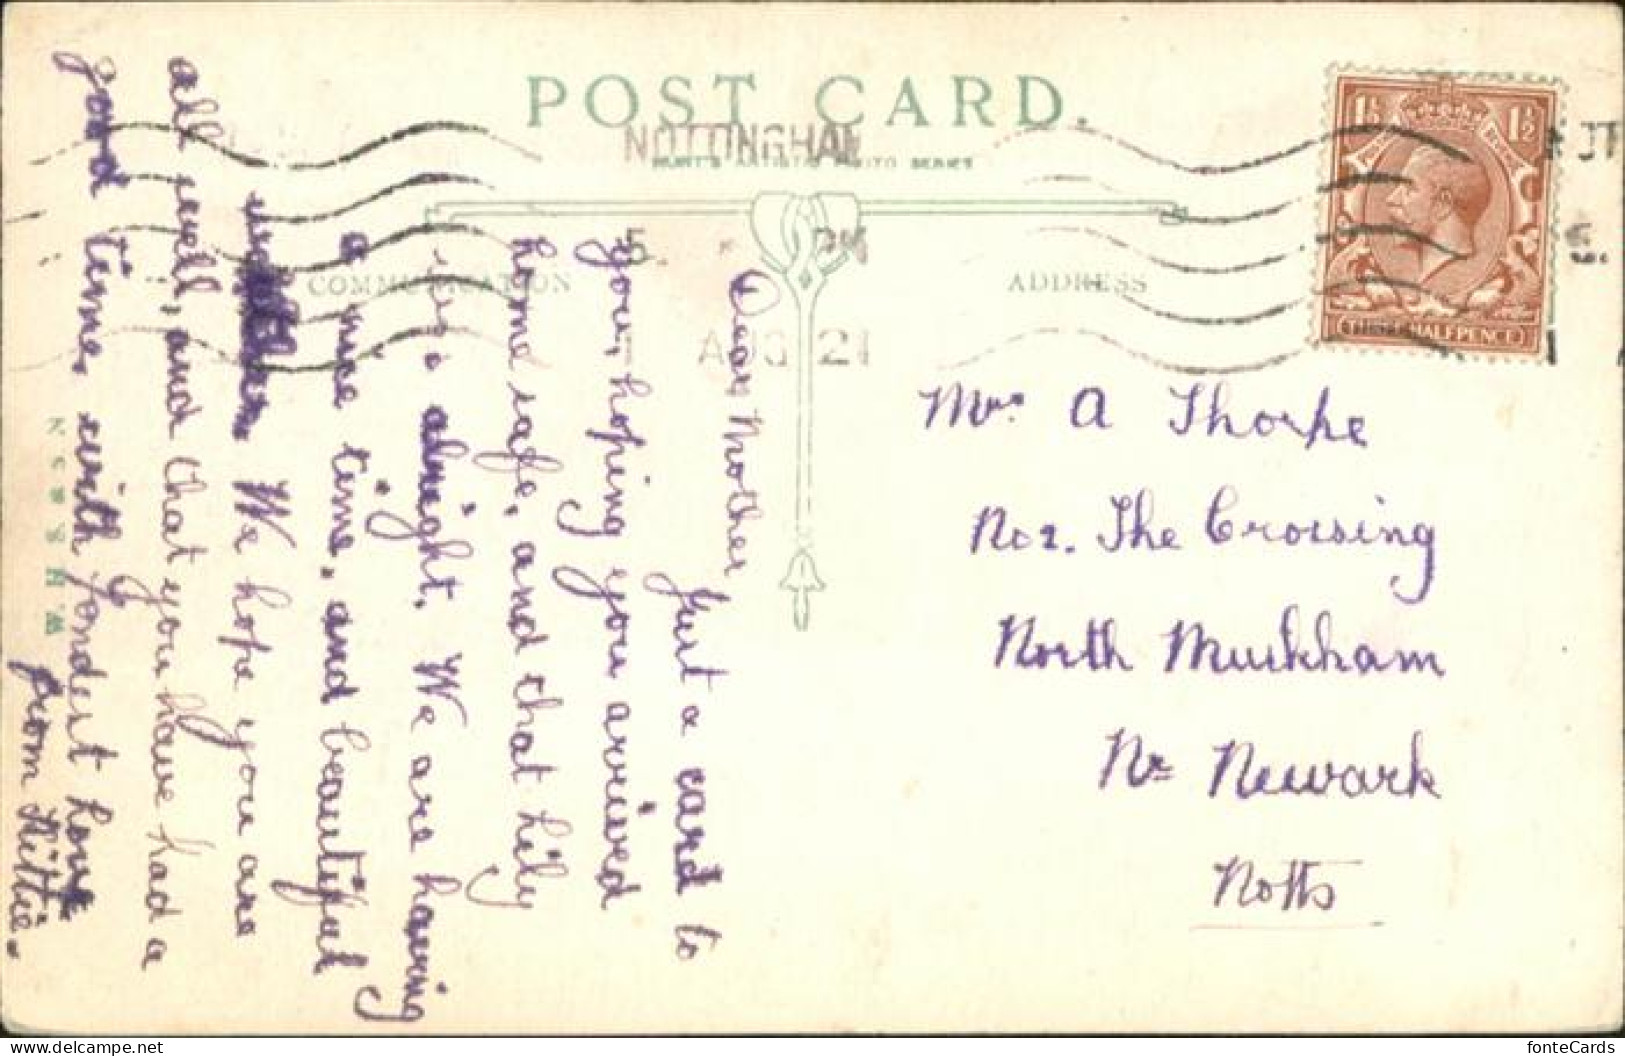 POST CARD.
NOTTINGHAM
5 PM
AUG 21
COMMUNICATION
ADDRESS
1½ 1½
THREE HALFPENCE
Dear Mother
Just a card to
you, hoping you arrived
home safe, and that Lily
is alright. We are having
a nice time, and beautiful
weather. We hope you are
all well, and that you have had a
good time, with fondest love
from Kittie.
Mrs A Thorpe
No 2. The Crossing
North Muskham
Nr Newark
Notts
fonteCards